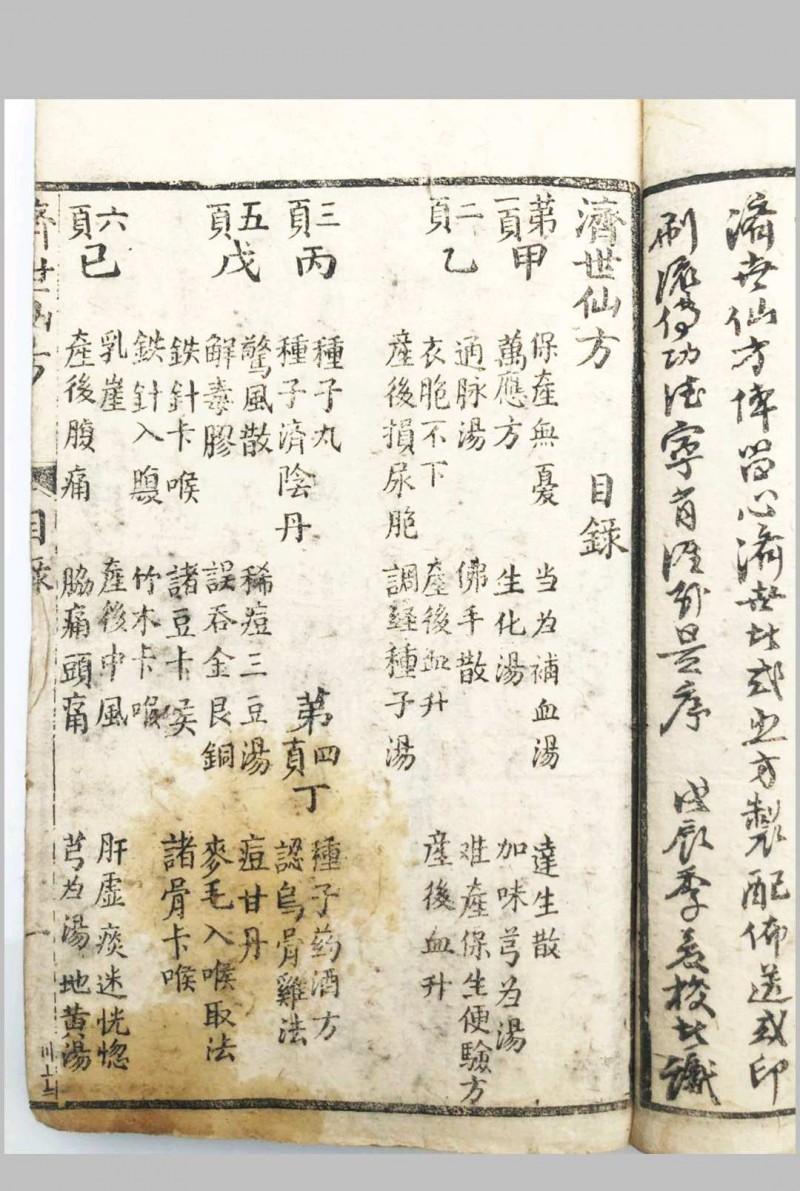 濟世仙方俾留心濟世者或照方製配佈送或印
刷流傳功德寧有涯外是序 戊辰季春校者識
濟世仙方 目録
保產無憂 当为補血湯 達生散
第一頁甲 萬應方 生化湯 加味芎为湯
通脉湯 佛手散 难產保生便驗方
二頁乙 衣胞不下 產後血升 產後血升
產後損尿脆 調經種子湯
三頁丙 種子丸 第四頁丁 種子药酒方
種子濟陰丹 認烏骨雞法
驚風散 稀痘三豆湯 痘甘丹
五頁戊 解毒膠 誤吞金艮銅 麥毛入喉取法
鉄針卡喉 諸豆卡喉 諸骨卡喉
鉄針入腹 竹木卡喉
六頁已 乳崖 產後中風 肝虛痰迷恍惚
產後腹痛 脇痛頭痛 芎为湯 地黄湯
濟世仙方 目録 一